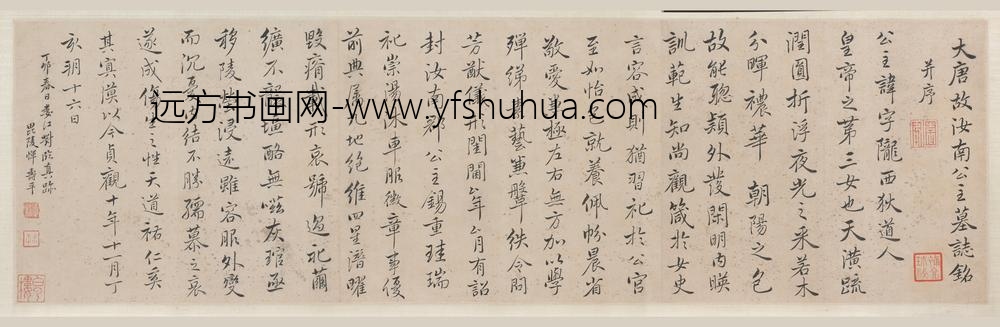 大唐故汝南公主墓誌銘
并序
公主諱字隴西狄道人
皇帝之第三女也天潢疏
潤圓折浮夜光之采若木
分暉穠華朝陽之色
故能聰穎外發閑明內暎
訓範生知尚觀箴於女史
言容成則猶習礼於公宮
至如怡 就養佩帉晨省
敬愛兼極左右無方加以學
殫綈 藝兼鞶紩令問
芳猷儀形閨閫年月有詔
封汝南郡公主錫重珪瑞
礼崇湯沐車服徽章事優
前典屬 地絕維四星潛曜
毀瘠 形哀號過礼繭
纊不 塩酪無嗞灰琯亟
移陵 浸遠雖容服外變
而沉憂 結不勝孺慕之哀
遂成 之性天道祐仁奚
其冥漠以今貞觀十年十一月丁
亥朔十六日
丁卯春日婁江對臨真跡
毘陵惲壽平
远方书画网-www.yfshuhua.com